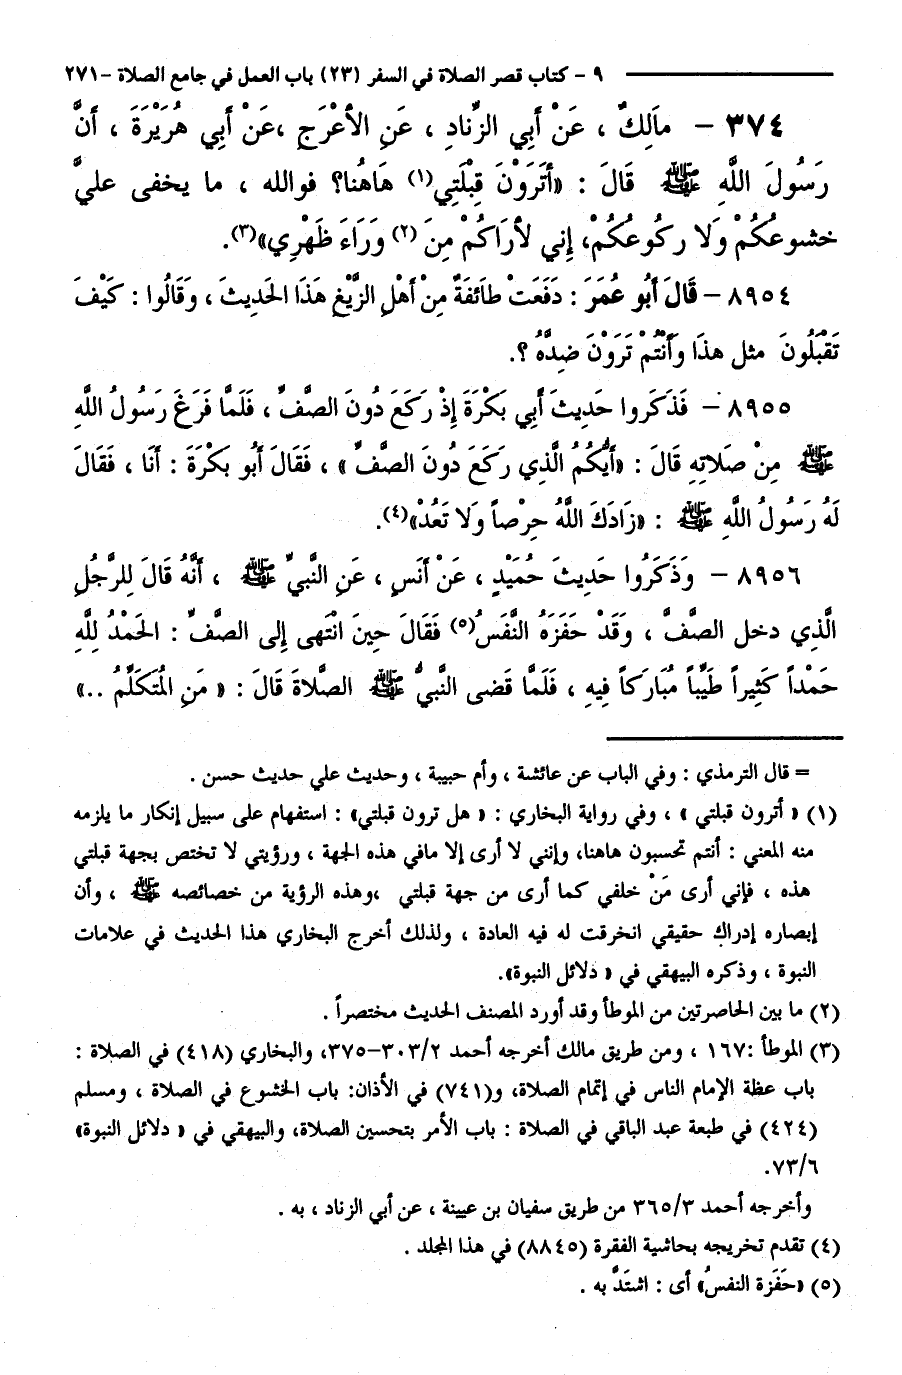 ٩ - كتاب قصر الصلاة في السفر (٢٣) باب العمل في جامع الصلاة -٢٧١
٣٧٤ - مَالِكٌ ، عَنْ أَبِي الزِّنَادِ ، عَنِ الأَعْرَجِ ،عَنْ أَبِي هُرَيْرَةَ ، أَنَّ
رَسُولَ اللَّهِ ﷺ قَالَ : «أتَرَوْنَ قِبْلَتِي(١) هَاهُنا؟ فوالله ، ما يخفى عليَّ
خشوعُكُمْ وَلا ركُوعُكُمْ، إِني لأرَاكُمْ مِنَ (٢) وَرَاءَ ظَهْرِي»(٣).
٨٩٥٤ - قَالَ أَبُو عُمَرَ : دَفَعَتْ طائَفَةٌ مِنْ أَهْلِ الزَّيْغِ هَذَا الحَدِيثَ ، وَقَالُوا : كَيْفَ
تَقْبَلُونَ مثل هذَا وَأَنْتُمْ تَرَوْنَ ضِدَّهُ ؟.
٨٩٥٥ - فَذَكَروا حَدِيثَ أَبِي بَكْرَةَ إِذْ رَكَعَ دُونَ الصفِّ ، فَلَمَّا فَرَغَ رَسُولُ اللَّهِ
ﷺ مِنْ صَلاتِهِ قَالَ : «أَيُّكُمُ الَّذِي رَكَعَ دُونَ الصَّفِّ» ، فَقَالَ أَبُو بَكْرَةَ : أَنَا ، فَقَالَ
لَهُ رَسُولُ اللَّهِ ﷺ : «زَادَكَ اللَّهُ حِرْصاً وَلا تَعُدْ»(٤).
٨٩٥٦ - وَذَكَرُوا حَدِيثَ حُمَيْدٍ ، عَنْ أَنَسٍ ، عَنِ النَّبيِّ ﷺ ، أَنَّهُ قَالَ لِلرَّجُلِ
الَّذِي دخل الصفَّ ، وَقَدْ حَفَزَهُ النَّفَسُ(٥) فَقَالَ حِينَ انْتَهى إِلى الصفِّ : الحَمْدُ لِلَّهِ
حَمْداً كَثِيراً طَيِّباً مُبَارَكاً فِيهِ ، فَلَمَّا قَضى النَّبيُّ ﷺ الصَّلاةَ قَالَ : « مَنِ المُتَكَلِّمُ ..»
= قال الترمذي : وفي الباب عن عائشة ، وأم حبيبة ، وحديث علي حديث حسن .
(١) « أترون قبلتي » ، وفي رواية البخاري : « هل ترون قبلتي» : استفهام على سبيل إنكار ما يلزمه
منه المعني : أنتم تحسبون هاهنا، وإنني لا أرى إلا مافي هذه الجهة ، ورؤيتي لا تختص بجهة قبلتي
هذه ، فإني أرى مَنْ خلفي كما أرى من جهة قبلتي ،وهذه الرؤية من خصائصه ﷺ ، وأن
إبصاره إدراك حقيقي انخرقت له فيه العادة ، ولذلك أخرج البخاري هذا الحديث في علامات
النبوة ، وذكره البيهقي في « دلائل النبوة».
(٢) ما بين الحاصرتين من الموطأ وقد أورد المصنف الحديث مختصراً .
(٣) الموطأ :١٦٧ ، ومن طريق مالك أخرجه أحمد ٣٠٣/٢-٣٧٥، والبخاري (٤١٨) في الصلاة :
باب عظة الإمام الناس في إتمام الصلاة، و(٧٤١) في الأذان: باب الخشوع في الصلاة ، ومسلم
(٤٢٤) في طبعة عبد الباقي في الصلاة : باب الأمر بتحسين الصلاة، والبيهقي في « دلائل النبوة»
٧٣/٦.
وأخرجه أحمد ٣٦٥/٣ من طريق سفيان بن عيينة ، عن أبي الزناد ، به .
(٤) تقدم تخريجه بحاشية الفقرة (٨٨٤٥) في هذا المجلد .
(٥) «حَفَزَة النفسُ» أى : اشتَدَّ به .